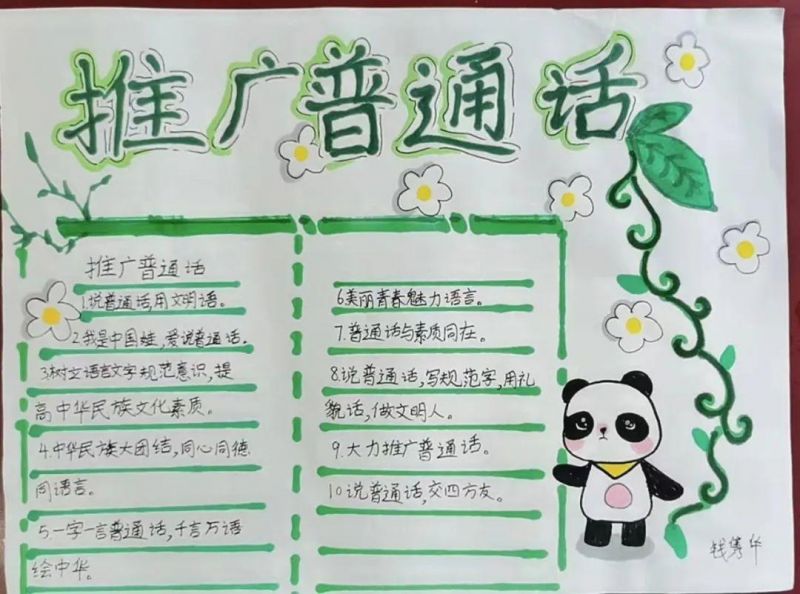 推广普通话
推广普通话
1.说普通话,用文明语。
2.我是中国娃,爱说普通话。
3.树立语言文字规范意识,提
高中华民族文化素质。
4.中华民族大团结,同心同德
同语言。
5.一字一言普通话,千言万语
绘中华。
6.美丽青春魅力语言。
7.普通话与素质同在。
8.说普通话,写规范字,用礼
貌话,做文明人。
9.大力推广普通话。
10.说普通话,交四方友。
钱隽华